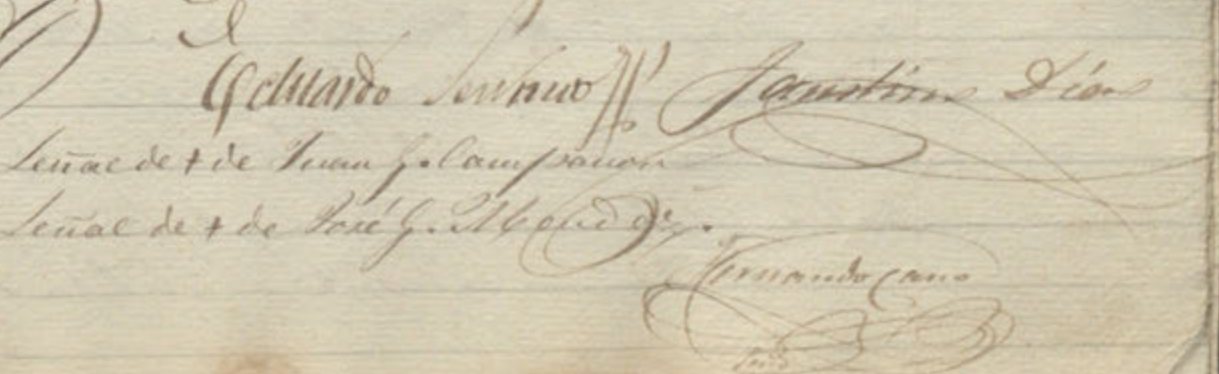 Eduardo Serrano Faustino Dias
Señal de + de Juan G. Campauon
Señal de + de José G. Mendez.
Fernando Cano